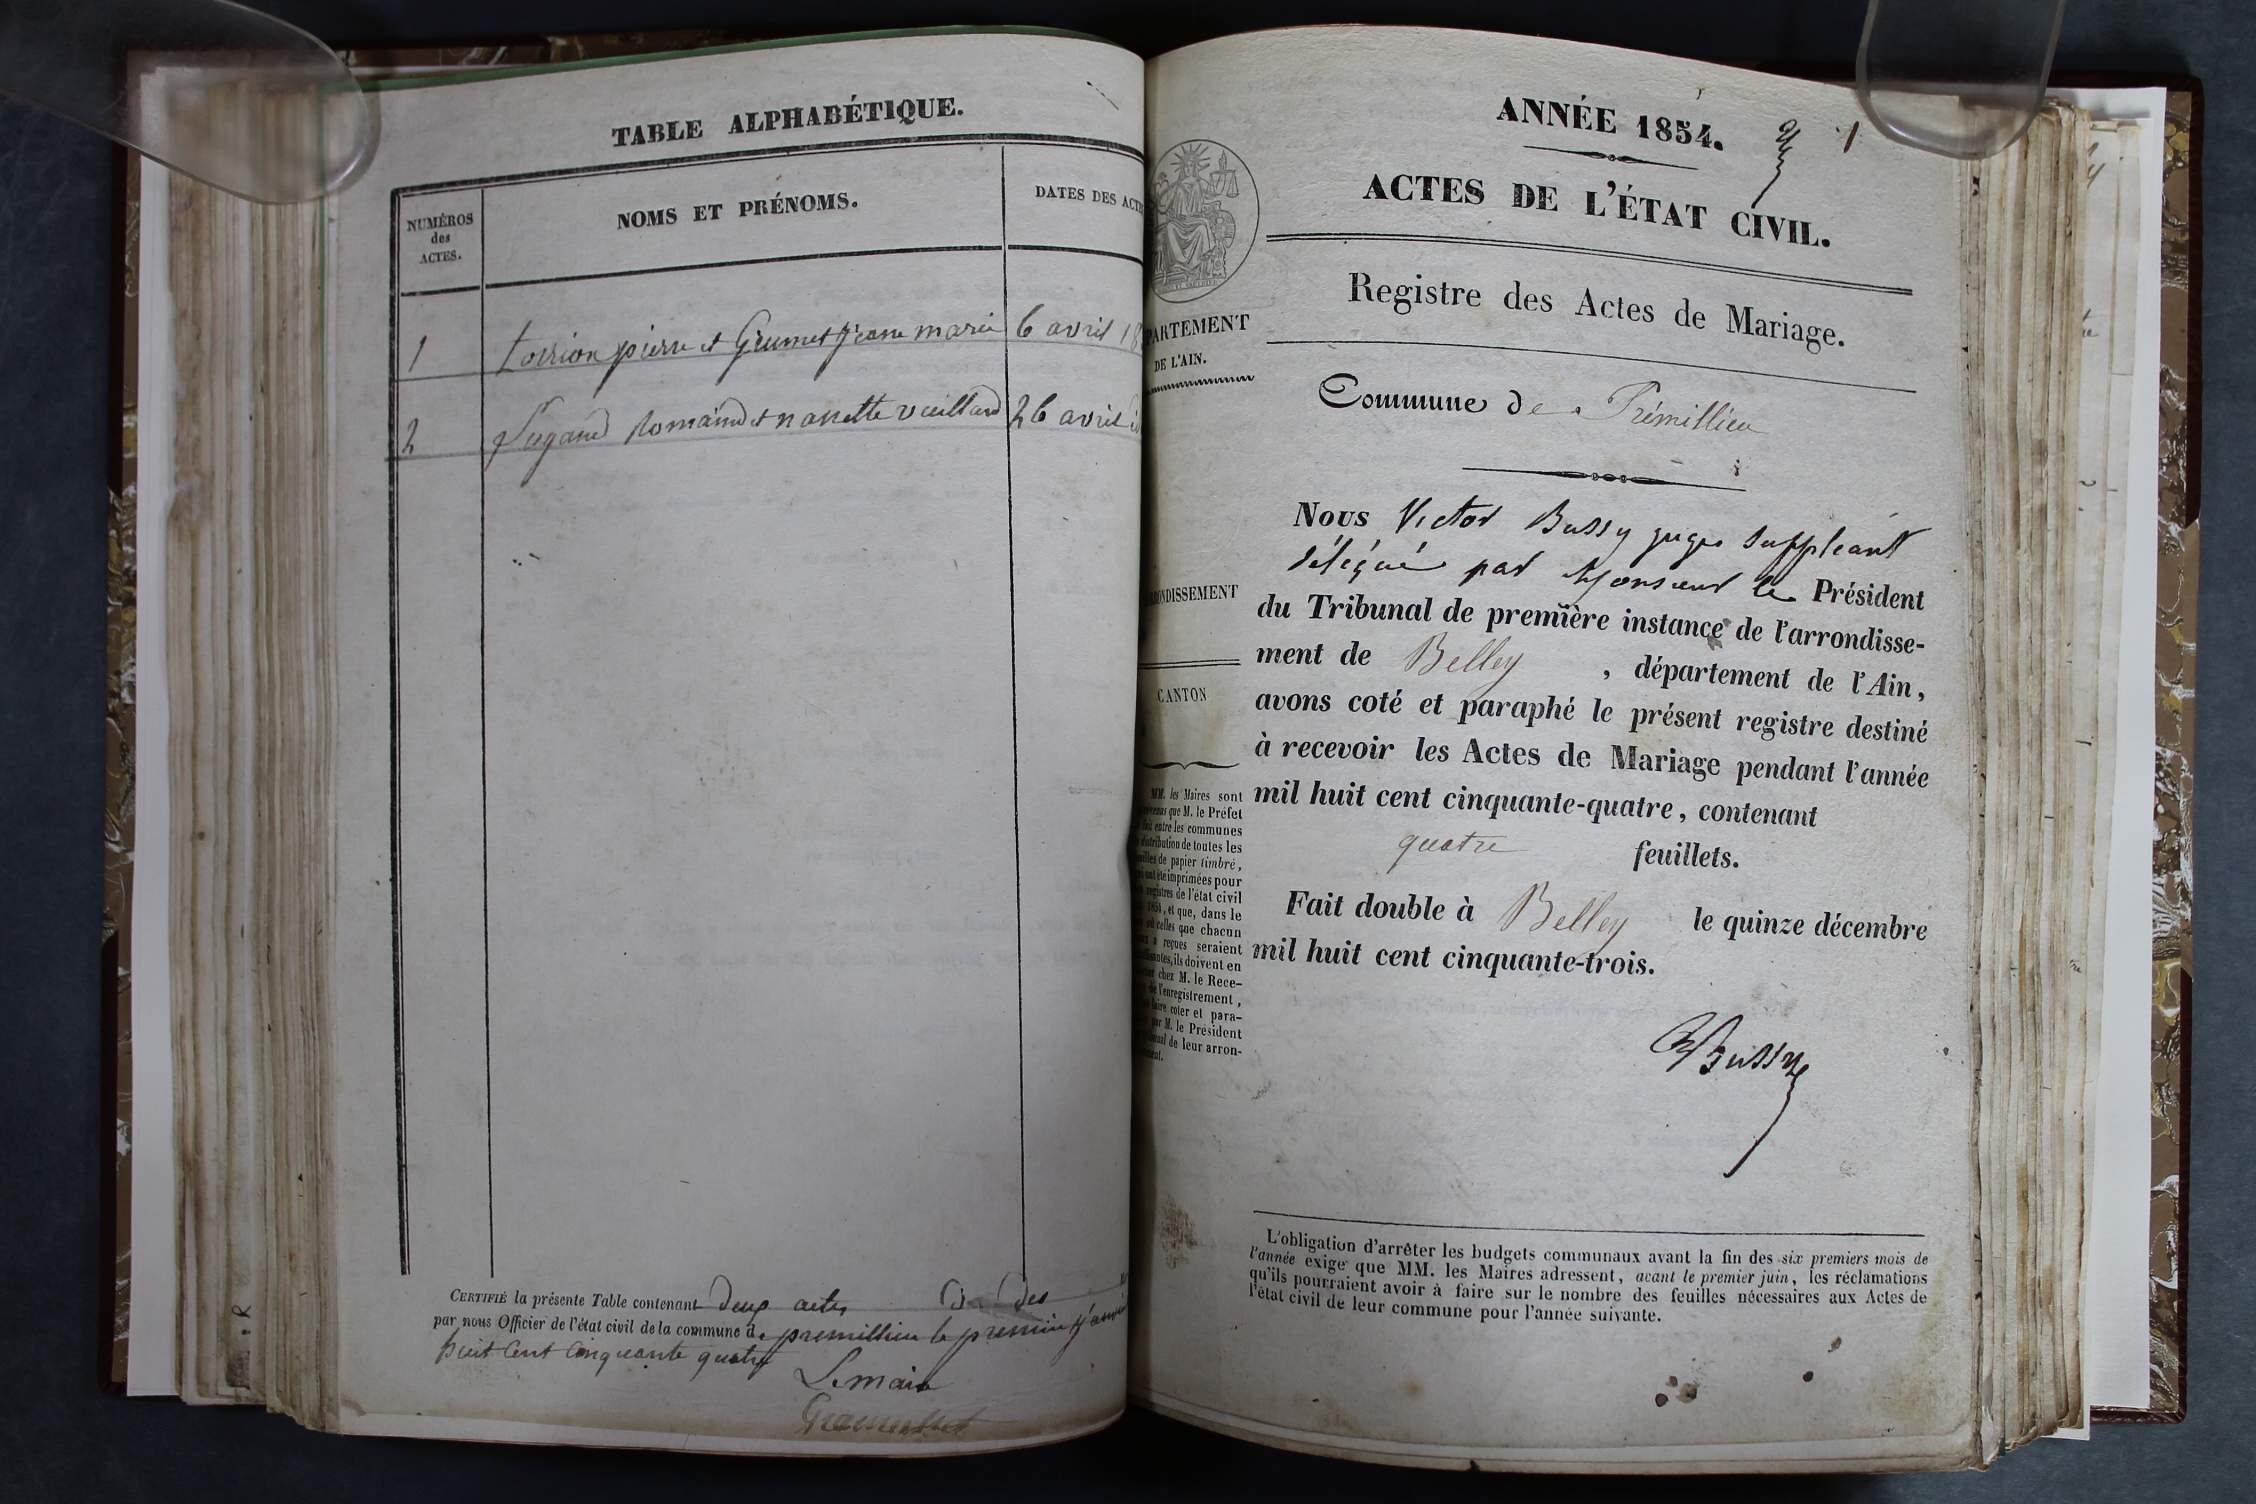 TABLE ALPHABÉTIQUE.
NUMÉROS
des
ACTES.
NOMS ET PRÉNOMS.
DATES DES ACTE
1 pierre et Grumet jeane marie 6 avril 18
2 Romain et nanette vieillard 26 avril
CERTIFIÉ la présente Table contenant Deux actes
par nous Officier de l'état civil de la commune de premillieu le premier
huit Cent Cinquante quatre
Le maire
ANNÉE 1854.
1
ACTES DE L'ÉTAT CIVIL.
Registre des Actes de Mariage.
PARTEMENT
DE L'AIN.
Commune de Prémillieu
Nous Victor Bussy juge suppléant
délégué par Monsieur le Président
du Tribunal de première instance de l'arrondisse-
ment de Belley , département de l'Ain,
avons coté et paraphé le présent registre destiné
à recevoir les Actes de Mariage pendant l'année
mil huit cent cinquante-quatre, contenant
quatre feuillets.
Fait double à Belley le quinze décembre
mil huit cent cinquante-trois.
Bussy
ONDISSEMENT
CANTON
MM. les Maires sont
que M. le Préfet
entre les communes
de toutes les
de papier timbré,
été imprimées pour
registres de l'état civil
1854, et que, dans le
celles que chacun
reçues seraient
ils doivent en
chez M. le Rece-
de l'enregistrement,
faire coter et para-
par M. le Président
de leur arron-
L'obligation d'arrêter les budgets communaux avant la fin des six premiers mois de
l'année exige que MM. les Maires adressent, avant le premier juin, les réclamations
qu'ils pourraient avoir à faire sur le nombre des feuilles nécessaires aux Actes de
l'état civil de leur commune pour l'année suivante.